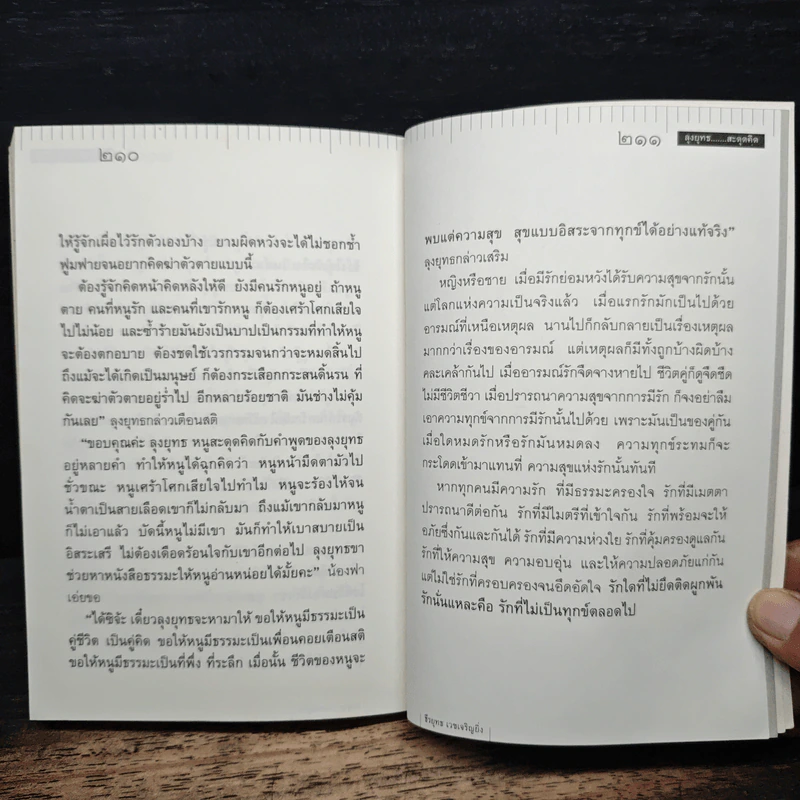 ๒๑๐
ให้รู้จักเผื่อไว้รักตัวเองบ้าง ยามผิดหวังจะได้ไม่ชอกช้ำ
ฟูมฟายจนอยากคิดฆ่าตัวตายแบบนี้
ต้องรู้จักคิดหน้าคิดหลังให้ดี ยังมีคนรักหนูอยู่ ถ้าหนู
ตาย คนที่หนูรัก และคนที่เขารักหนู ก็ต้องเศร้าโศกเสียใจ
ไปไม่น้อย และซ้ำร้ายมันยังเป็นบาปเป็นกรรมที่ทำให้หนู
จะต้องตกอบาย ต้องชดใช้เวรกรรมจนกว่าจะหมดสิ้นไป
ถึงแม้จะได้เกิดเป็นมนุษย์ ก็ต้องกระเสือกกระสนดิ้นรน ที่
คิดจะฆ่าตัวตายอยู่ร่ำไป อีกหลายร้อยชาติ มันช่างไม่คุ้ม
กันเลย” ลุงยุทธกล่าวเตือนสติ
“ขอบคุณค่ะ ลุงยุทธ หนูสะดุดคิดกับคำพูดของลุงยุทธ
อยู่หลายคำ ทำให้หนูได้ฉุกคิดว่า หนูหน้ามืดตามัวไป
ชั่วขณะ หนูเศร้าโศกเสียใจไปทำไม หนูจะร้องไห้จน
น้ำตาเป็นสายเลือดเขาก็ไม่กลับมา ถึงแม้เขากลับมาหนู
ก็ไม่เอาแล้ว บัดนี้หนูไม่มีเขา มันก็ทำให้เบาสบายเป็น
อิสระเสรี ไม่ต้องเดือดร้อนใจกับเขาอีกต่อไป ลุงยุทธขา
ช่วยหาหนังสือธรรมะให้หนูอ่านหน่อยได้มั้ยคะ” น้องฟา
เอ่ยขอ
“ได้ซิจ้ะ เดี๋ยวลุงยุทธจะหามาให้ ขอให้หนูมีธรรมะเป็น
คู่ชีวิต เป็นคู่คิด ขอให้หนูมีธรรมะเป็นเพื่อนคอยเตือนสติ
ขอให้หนูมีธรรมะเป็นที่พึ่ง ที่ระลึก เมื่อนั้น ชีวิตของหนูจะ
๒๑๑ ลุงยุทธ......สะดุดคิด
พบแต่ความสุข สุขแบบอิสระจากทุกข์ได้อย่างแท้จริง”
ลุงยุทธกล่าวเสริม
หญิงหรือชาย เมื่อมีรักย่อมหวังได้รับความสุขจากรักนั้น
แต่โลกแห่งความเป็นจริงแล้ว เมื่อแรกรักมักเป็นไปด้วย
อารมณ์ที่เหนือเหตุผล นานไปก็กลับกลายเป็นเรื่องเหตุผล
มากกว่าเรื่องของอารมณ์ แต่เหตุผลก็มีทั้งถูกบ้างผิดบ้าง
คละเคล้ากันไป เมื่ออารมณ์รักจืดจางหายไป ชีวิตคู่ก็ดูจืดชืด
ไม่มีชีวิตชีวา เมื่อปรารถนาความสุขจากการมีรัก ก็จงอย่าลืม
เอาความทุกข์จากการมีรักนั้นไปด้วย เพราะมันเป็นของคู่กัน
เมื่อใดหมดรักหรือรักมันหมดลง ความทุกข์ระทมก็จะ
กระโดดเข้ามาแทนที่ ความสุขแห่งรักนั้นทันที
หากทุกคนมีความรัก ที่มีธรรมะครองใจ รักที่มีเมตตา
ปรารถนาดีต่อกัน รักที่มีไมตรีที่เข้าใจกัน รักที่พร้อมจะให้
อภัยซึ่งกันและกันได้ รักที่มีความห่วงใย รักที่คุ้มครองดูแลกัน
รักที่ให้ความสุข ความอบอุ่น และให้ความปลอดภัยแก่กัน
แต่ไม่ใช่รักที่ครอบครองจนอึดอัดใจ รักใดที่ไม่ยึดติดผูกพัน
รักนั่นแหละคือ รักที่ไม่เป็นทุกข์ตลอดไป
ธีรยุทธ เวชเจริญยิ่ง